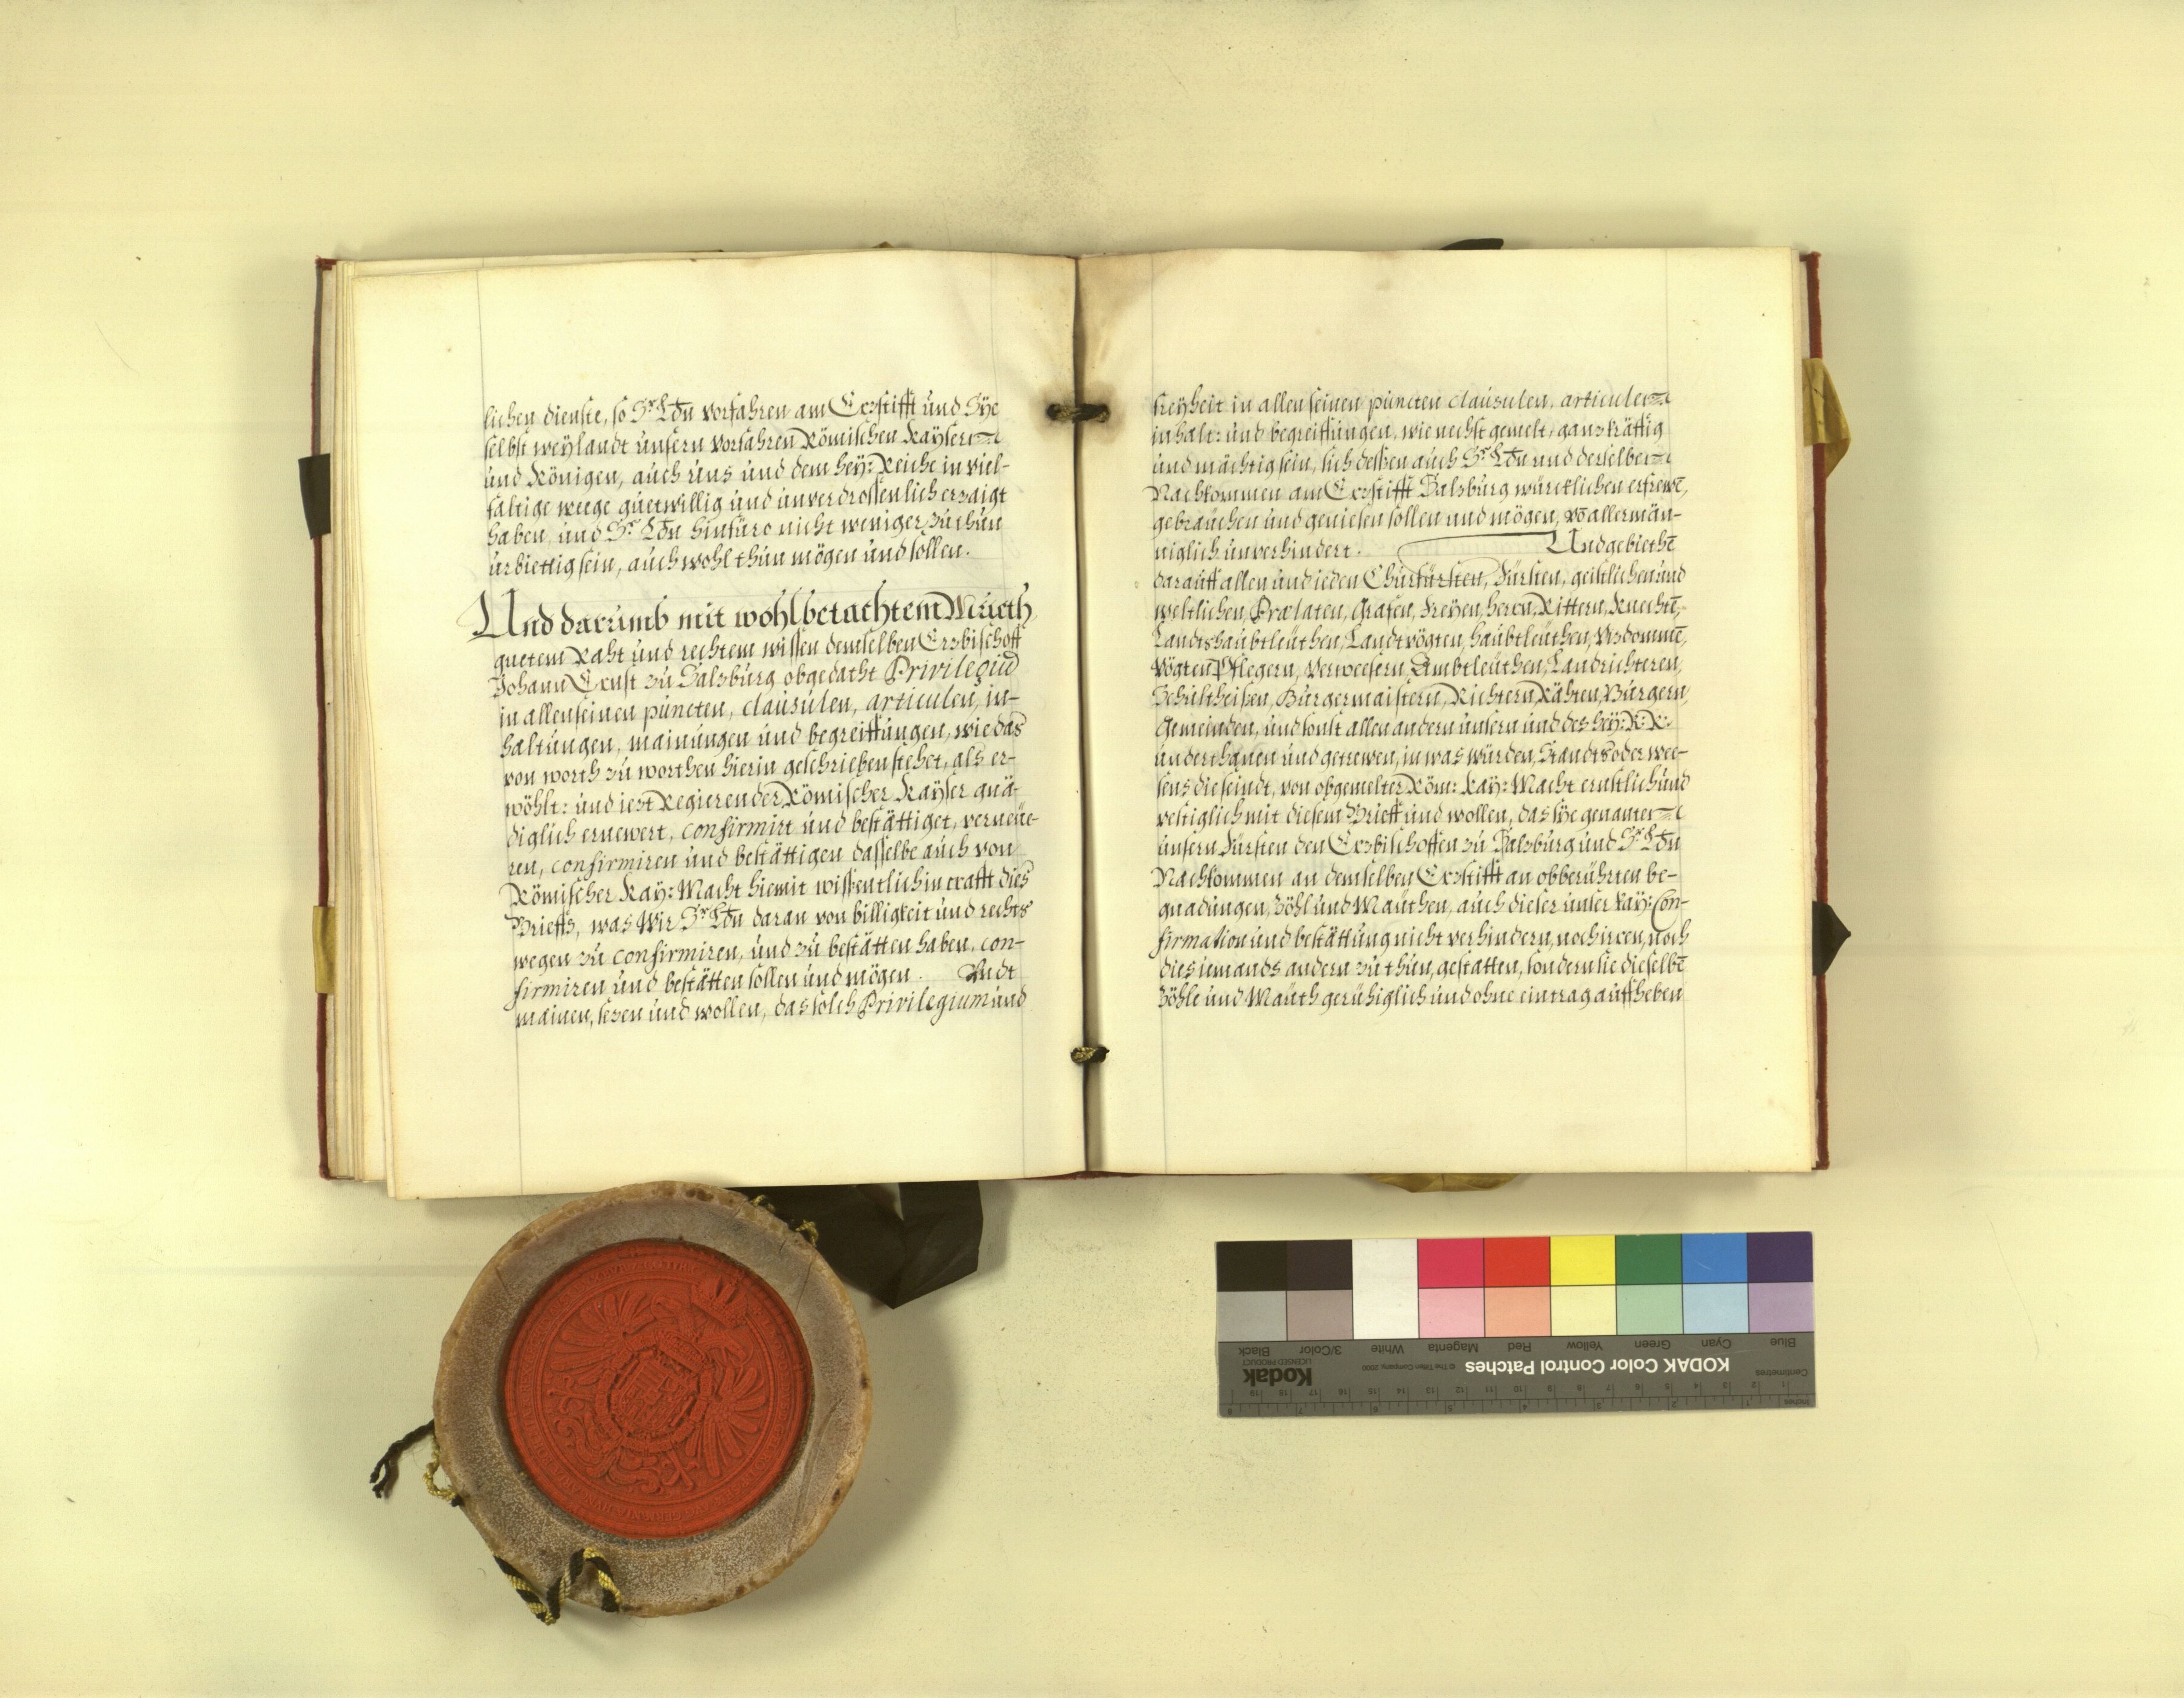 lichen dienste, so Sr. Lbdn vorfahren am Erzstifft und Sye
selbst weylandt unsern vorfahren Römischen Kaysern
und Königen, auch uns und dem hey: Reiche in viel-
faltige weege guetwillig und unverdrossenlich erzaigt
haben, und Sr. Lbdn hinfüro nicht weniger zu thun
urbiettig sein, auch wohl thun mögen und sollen.
Und darumb mit wohlbetachtem Mueth
guetem Raht und rechtem wissen demselben Erzbischoff
Johann Ernst zu Salzburg obgedacht Privilegiū
in allen seinen puncten, clausulen, articulen, in-
haltungen, mainungen und begreiffungen, wie das
von worth zu worthen hierin geschrieben stehet, als er-
wöhlt: und iezt Regierender Römischer Kayser gnä-
diglich ernewert, confirmirt und bestättiget, verneüe-
ren, confirmiren und bestättigen dasselbe auch von
Römischer Kay: Macht hiemit wissentlich in crafft dies
Brieffs, was Wir Sr. Lbdn daran von billigkeit und rechts
wegen zu confirmiren, und zu bestätten haben, con-
firmiren und bestätten sollen und mögen. Undt
mainen, sezen und wollen, das solch Privilegium und
freyheit in allen seinen puncten clausulen, articulen
inhalt: und begreiffungen, wie nechst gemelt, ganz kräfftig
und mächtig sein, sich dessen auch Sr. Lbdn und derselben
Nachkommen am Erzstifft Salzburg würcklichen erfrewē,
gebrauchen und geniesen sollen und mögen, vō allermän-
niglich unverhindert. Und gebiethē
darauff allen und ieden Churfürsten, Fürsten, geistlichen und
weltlichen, Prælaten, Grafen, Freyen, herrn, Rittern, Knechtē,
Landtshaubtleuthen, Landtvögten, haubtleuthen, Vizdommē,
Vögten, Pflegern, Verweesern, Ambtleuthen, Landrichteren,
Schultheißen, Burgermaistern, Richtern, Rähten, Burgern,
Gemeinden, und sonst allen andern unsern und des hey: R: R:
underthanen und getrewen, in was würden, Standts oder wee-
sens die seindt, von obgemelter Röm: Kay: Macht ernstlich und
vestiglich mit diesem Brieff und wollen, das sye genanten
unsern Fürsten den Erzbischoffen zu Salzburg und Sr. Lbdn
Nachkommen an demselben Erzstifft an obberührten be-
gnadungen, Zöhl und Mauthen, auch dieser unser Kay: Con-
firmation und bestättung nicht verhindern, noch irren, noch
dies iemands andern zu thun, gestatten, sondern sie dieselbē
Zöhle und Mauth geruhiglich und ohne eintrag auffheben
KODAK Color Control Patches
© The Tiffen Company, 2000
Kodak
LICENSED PRODUCT
Blue Cyan Green Yellow Red Magenta White 3/Color Black
Centimetres
Inches